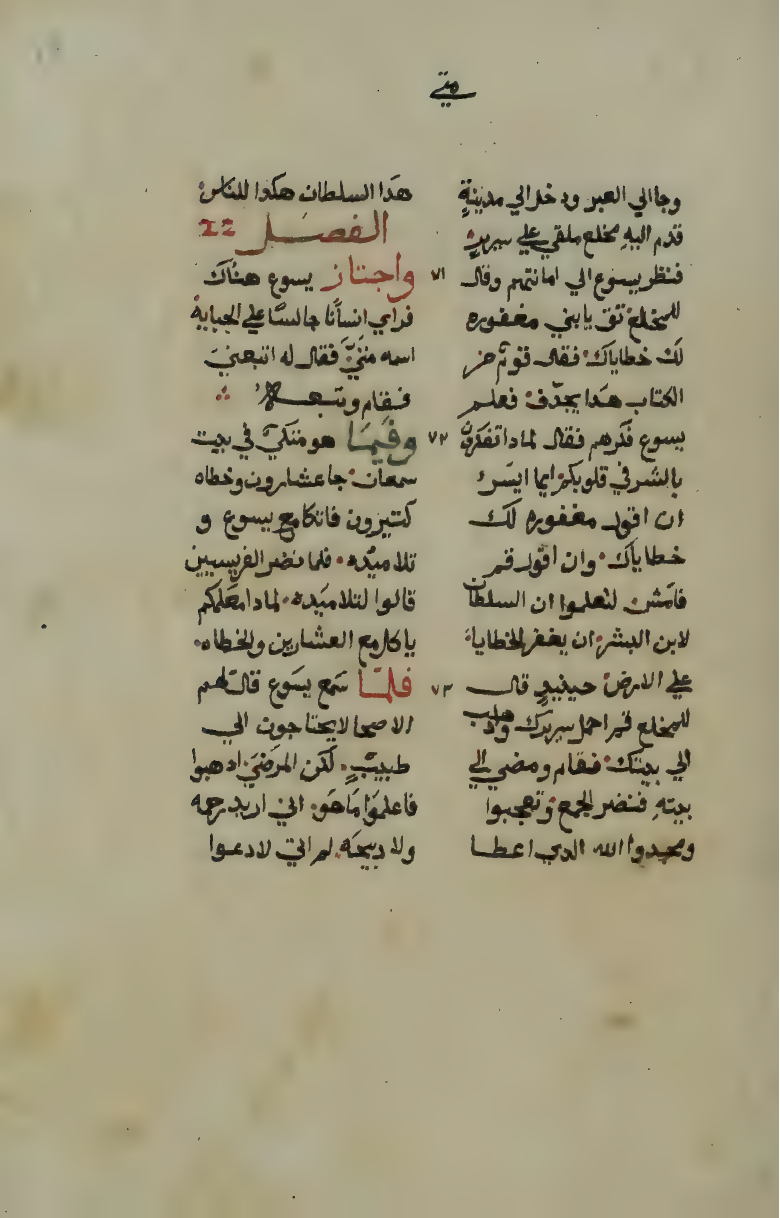 متي
وجا الي العبر ودخل الي مدينةٍ
قدم اليهِ مخلع ملقي علي سرير
فنظر يسوع الي امانتهم وقال
للمخلع تق يابني مغفوره
لك خطاياك فقال قوم من
الكتاب هدا يجدّف فعلم
يسوع فكرهم فقال لمادا تفكرون
بالشر في قلوبكم ايما ايسر
ان اقول مغفوره لك
خطاياك وان اقول قم
فامش لتعلموا ان السلطان
لابن البشر ان يغفر الخطايا
علي الارض حينيدٍ قال
للمخلع قم احمل سريرك وادهب
الي بيتك فقام ومضي الي
بيتهِ فنضر الجمع وتعجبوا
ومجدوا الله الدي اعطا
هدا السلطان هكدا للناس
الفصل 22
٧١ واجتاز يسوع هناك
فراي انسانا جالسا علي الجباية
اسمه متيّ فقال له اتبعني
فقام وتبعه
٧٢ وفيما هو متكي في بيت
سمعان جا عشارون وخطاه
كتيرون فاتكا مع يسوع و
تلاميده فلما نضر الفريسيين
قالوا لتلاميده لمادا معلمكم
ياكل مع العشارين والخطاه
٧٣ فلما سمع يسوع قال لهم
الاصحا لا يحتاجون الي
طبيب لكن المرضي ادهبوا
فاعلموا ما هو اني اريد رحمه
ولا دبيحه لم اتي لادعوا